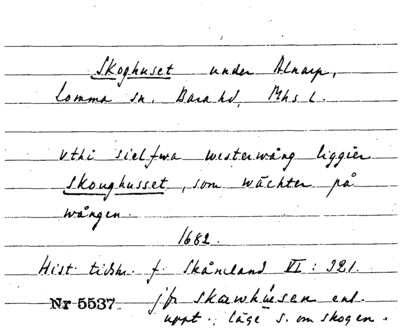 Skoghuset under Alnarp,
Lomma sn. Bara hd, Mhs l.
vthi sielfwa westerwång liggier
Skoughusset, som wächter på
wången.
1682.
Hist. tidskr. f. Skåneland VI: 321.
Nr 5537 jfr skæwhúsen enl.
uppt.; läge s. om skogen.